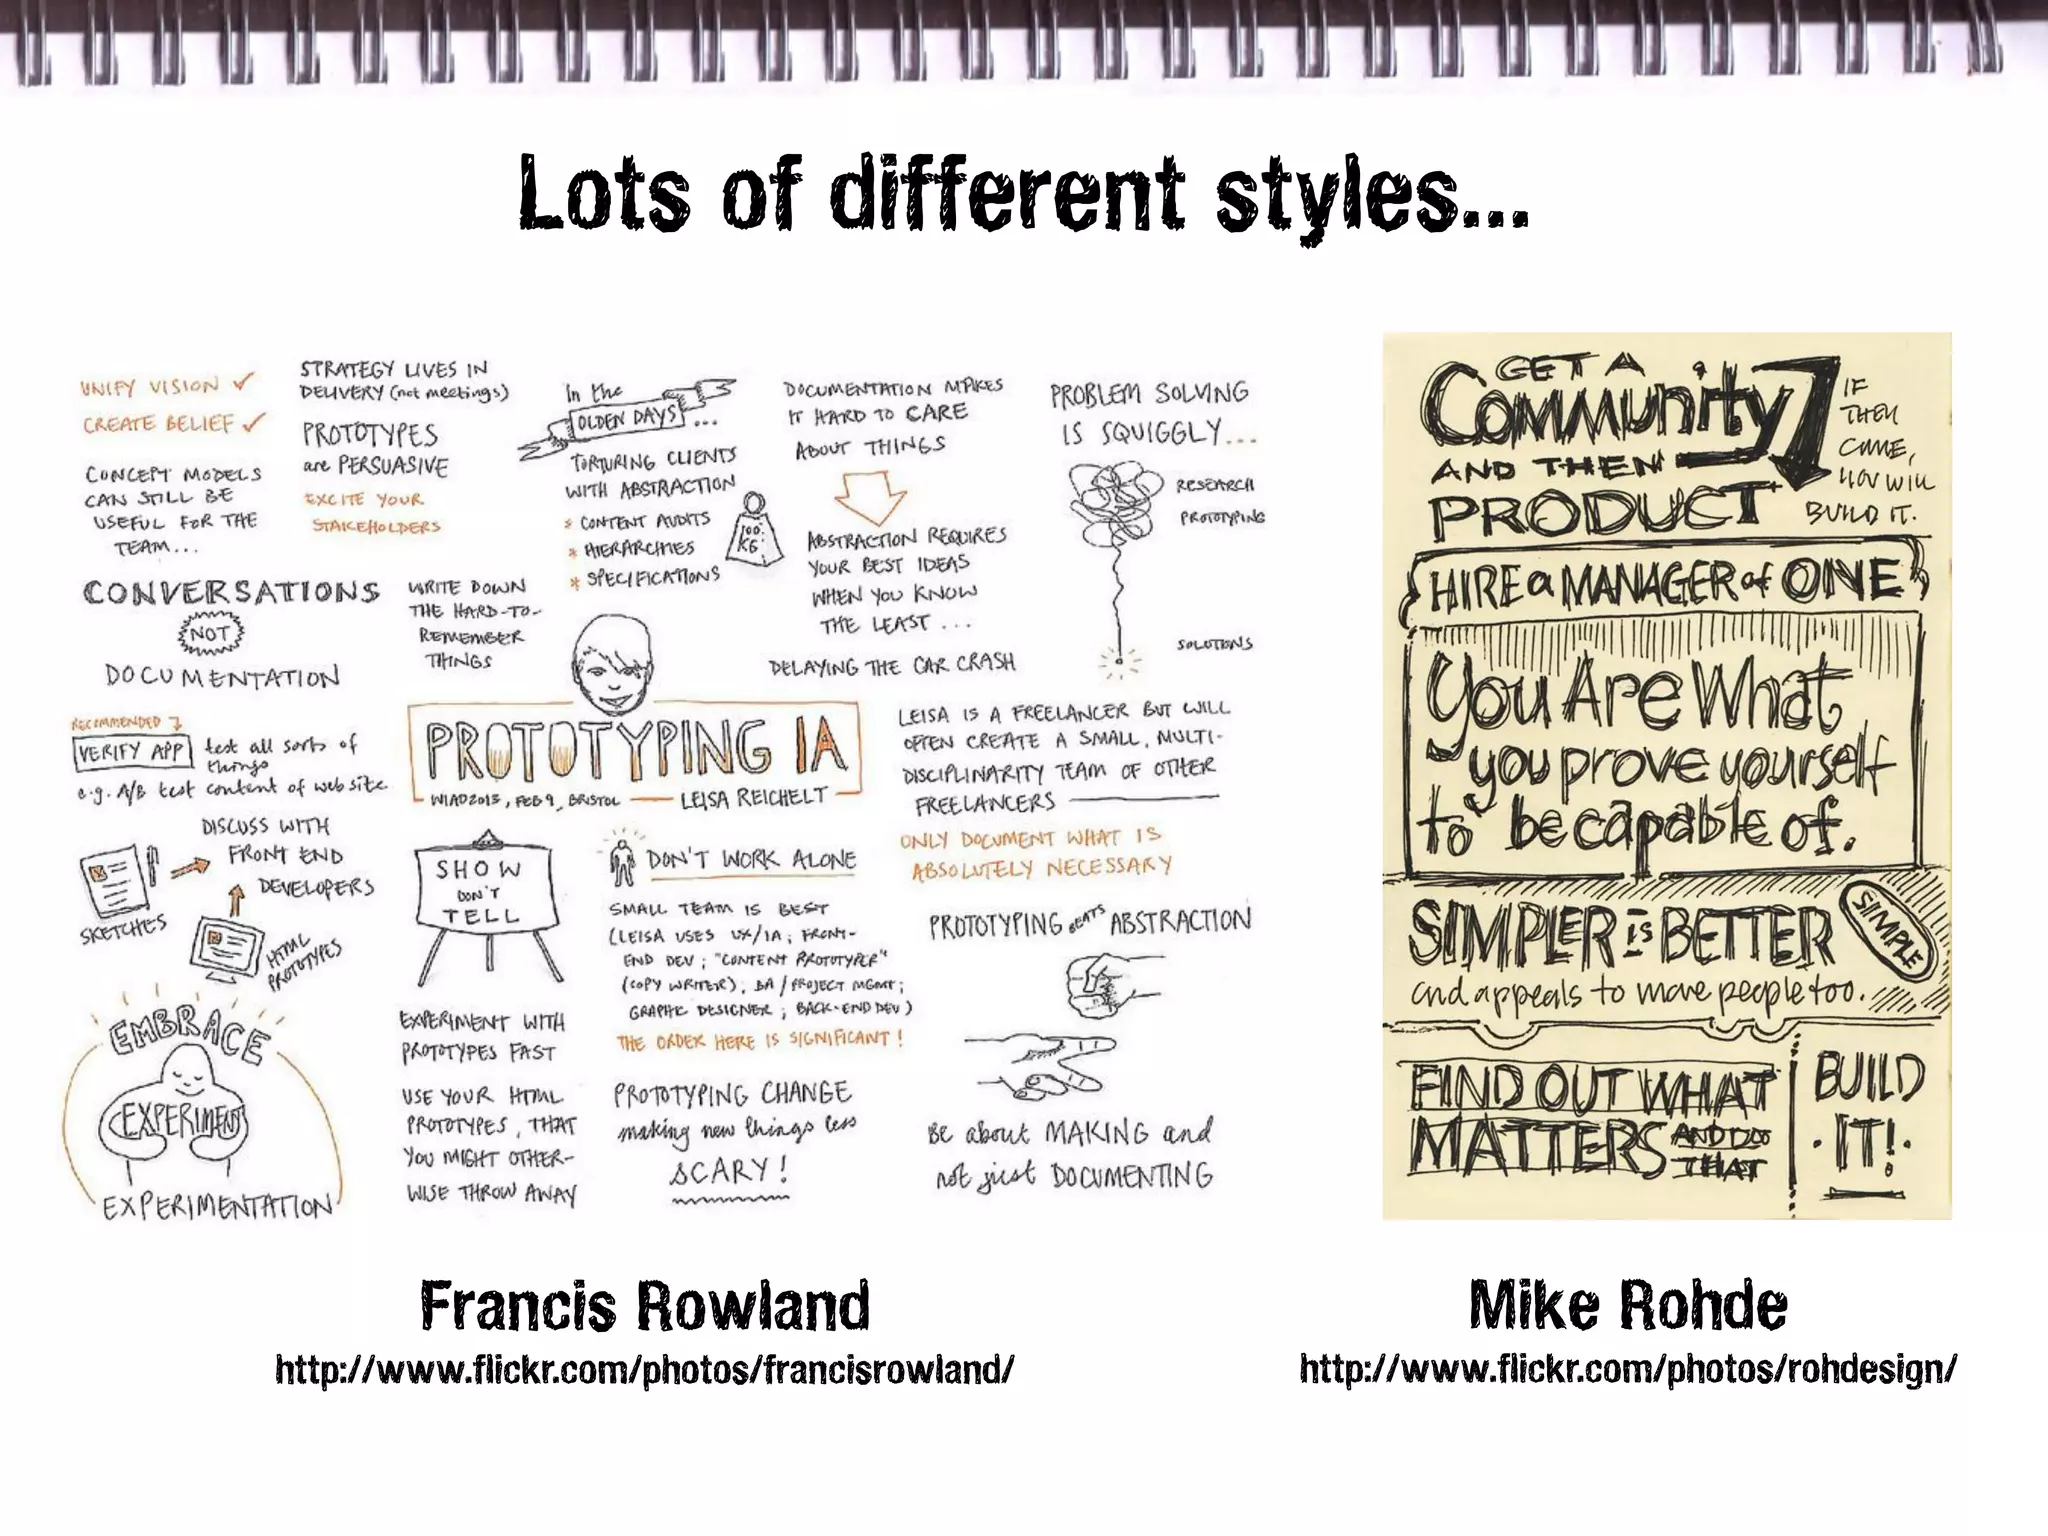 Lots of different styles...
UNIFY VISION ✓
CREATE BELIEF ✓
CONCEPT MODELS
CAN STILL BE
USEFUL FOR THE
TEAM...
STRATEGY LIVES IN
DELIVERY (not meetings)
PROTOTYPES
are PERSUASIVE
EXCITE YOUR
STAKEHOLDERS
In the
OLDEN DAYS ...
TORTURING CLIENTS
WITH ABSTRACTION
* CONTENT AUDITS
* HIERARCHIES
* SPECIFICATIONS
100
KG
DOCUMENTATION MAKES
IT HARD TO CARE
ABOUT THINGS
ABSTRACTION REQUIRES
YOUR BEST IDEAS
WHEN YOU KNOW
THE LEAST ...
DELAYING THE CAR CRASH
PROBLEM SOLVING
IS SQUIGGLY...
RESEARCH
PROTOTYPING
SOLUTIONS
CONVERSATIONS
NOT
DOCUMENTATION
WRITE DOWN
THE HARD-TO-
REMEMBER
THINGS
RECOMMENDED
VERIFY APP test all sorts of
things
e.g. A/B test content of website
PROTOTYPING IA
WIAD2013, FEB 9, BRISTOL — LEISA REICHELT
LEISA IS A FREELANCER BUT WILL
OFTEN CREATE A SMALL, MULTI-
DISCIPLINARITY TEAM OF OTHER
FREELANCERS
ONLY DOCUMENT WHAT IS
ABSOLUTELY NECESSARY
DISCUSS WITH
FRONT END
DEVELOPERS
SKETCHES
HTML
PROTOTYPES
SHOW
DON'T
TELL
DON'T WORK ALONE
SMALL TEAM IS BEST
(LEISA USES UX/IA; FRONT-
END DEV; "CONTENT PROTOTYPER"
(COPY WRITER); BA/PROJECT MGMT;
GRAPHIC DESIGNER; BACK-END DEV)
THE ORDER HERE IS SIGNIFICANT!
PROTOTYPING BEATS ABSTRACTION
EMBRACE
EXPERIMENT
EXPERIMENTATION
EXPERIMENT WITH
PROTOTYPES FAST
USE YOUR HTML
PROTOTYPES, THAT
YOU MIGHT OTHER-
WISE THROW AWAY
PROTOTYPING CHANGE
making new things less
SCARY!
BE about MAKING and
not just DOCUMENTING
GET A
COMMUNITY
AND THEN
PRODUCT
IF
THEY
COME,
YOU WILL
BUILD IT.
HIRE a MANAGER of ONE
You Are What
you prove yourself
to be capable of.
SIMPLER is BETTER
SIMPLE
and appeals to more people too.
FIND OUT WHAT
MATTERS AND DO
THAT
BUILD
IT!
Francis Rowland
http://www.flickr.com/photos/francisrowland/
Mike Rohde
http://www.flickr.com/photos/rohdesign/